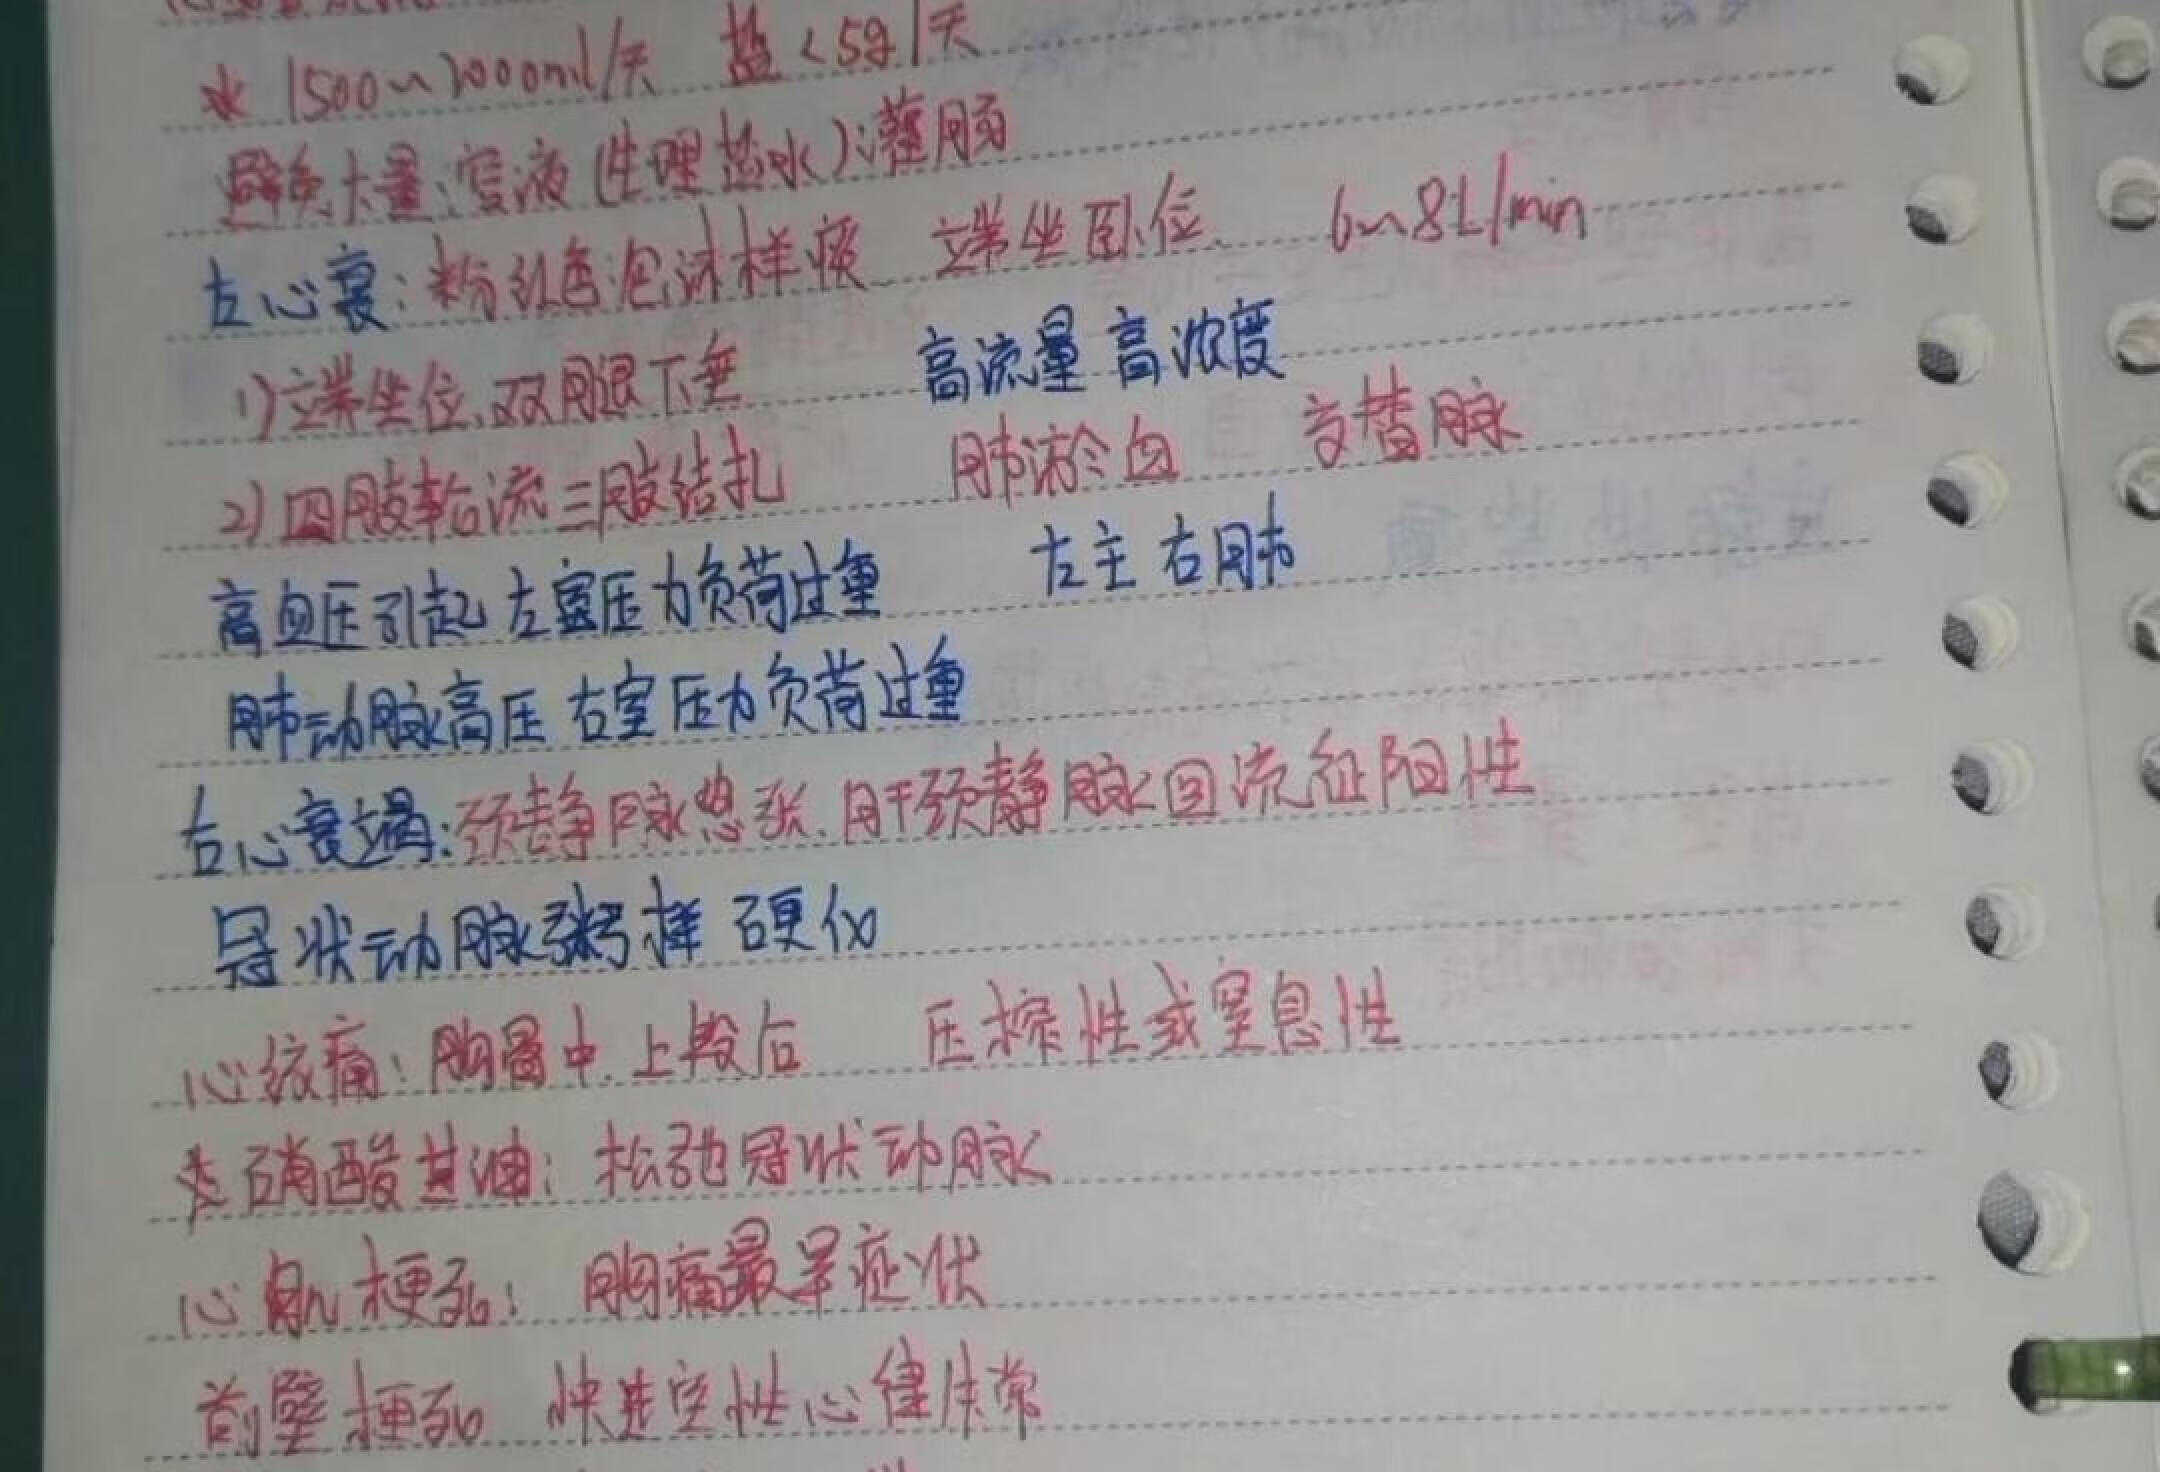 水 1500~2000ml/天 盐<5g/天
避免大量:溶液(生理盐水):灌肠
左心衰:粉红色泡沫样痰 端坐卧位 6~8L/min
1)端坐位,双腿下垂 高流量高浓度
2)四肢轮流三肢结扎 肺淤血 交替脉
高血压引起左室压力负荷过重 左主右肺
肺动脉高压右室压力负荷过重
右心衰竭:颈静脉怒张.肝颈静脉回流征阳性
冠状动脉粥样硬化
心绞痛:胸骨中.上段后 压榨性或窒息性
硝酸甘油:松弛冠状动脉
心肌梗死:胸痛最早症状
前壁梗死 快 室性心律失常